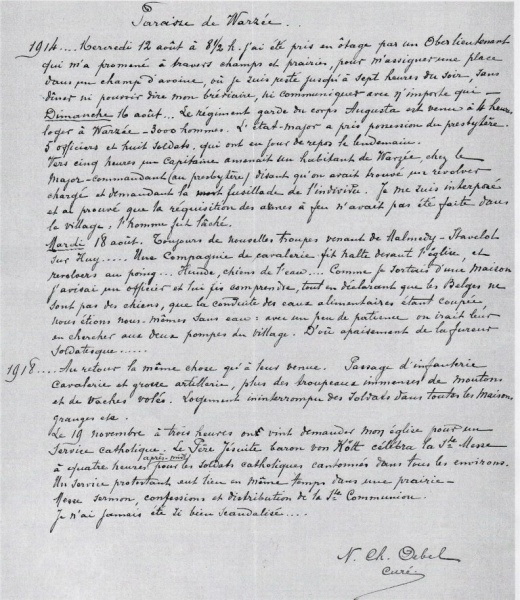 Paroisse de Warzée.
1914.... Mercredi 12 août à 8½ h. j'ai été pris en ôtage par un Oberlieutenant
qui m'a promené à travers champs et prairies, pour m'assigner une place
dans un champ d'avoine, où je suis resté jusqu'à sept heures du soir, sans
dîner ni pouvoir dire mon bréviaire, ni communiquer avec n'importe qui -
Dimanche 16 août... Le régiment garde du corps Augusta est venu à 4 heures
loger à Warzée - 3000 hommes. L'état-major a pris possession du presbytère.
5 officiers et huit soldats. qui ont eu jour de repos le lendemain.
Vers cinq heures un Capitaine amenait un habitant de Warzée, chez le
Major-commandant (au presbytère) disant qu'on avait trouvé un révolver
chargé et demandant la mort fusillade de l'individu. Je me suis interposé
et ai prouvé que la réquisition des armes à feu n'avait pas été faite dans
le village: l'homme fut lâché.
Mardi 18 août. Toujours de nouvelles troupes venant de Malmedy - Stavelot
sur Huy..... Une Compagnie de cavalerie fit halte devant l'église, et
revolvers au poing... Hunde, chiens de l'eau... Comme je sortais d'une maison
j'avisai un officier et lui fis comprendre, tout en déclarant que les Belges ne
sont pas des chiens, que la conduite des eaux alimentaires étant coupée,
nous étions nous-mêmes sans eau: avec un peu de patience on irait leur
en chercher aux deux pompes du village. D'où apaisement de la fureur
soldatesque......
1918.... Au retour la même chose qu'à leur venue. Passage d'infanterie
cavalerie et grosse artillerie, plus des troupeaux immenses de moutons
et de vaches volés. Logement ininterrompu des soldats dans toutes les maisons,
granges etc.
Le 19 novembre à trois heures on vint demander mon église pour un
Service catholique. Le Père Jésuite baron von célébra la Ste Messe
à quatre heures après-midi pour les soldats catholiques cantonnés dans tous les environs.
Un service protestant eut lieu en même temps dans une prairie -
Messe sermon, confessions et distribution de la Ste Communion.
Je n'ai jamais été si bien scandalisé....
N. Ch.
Curé.